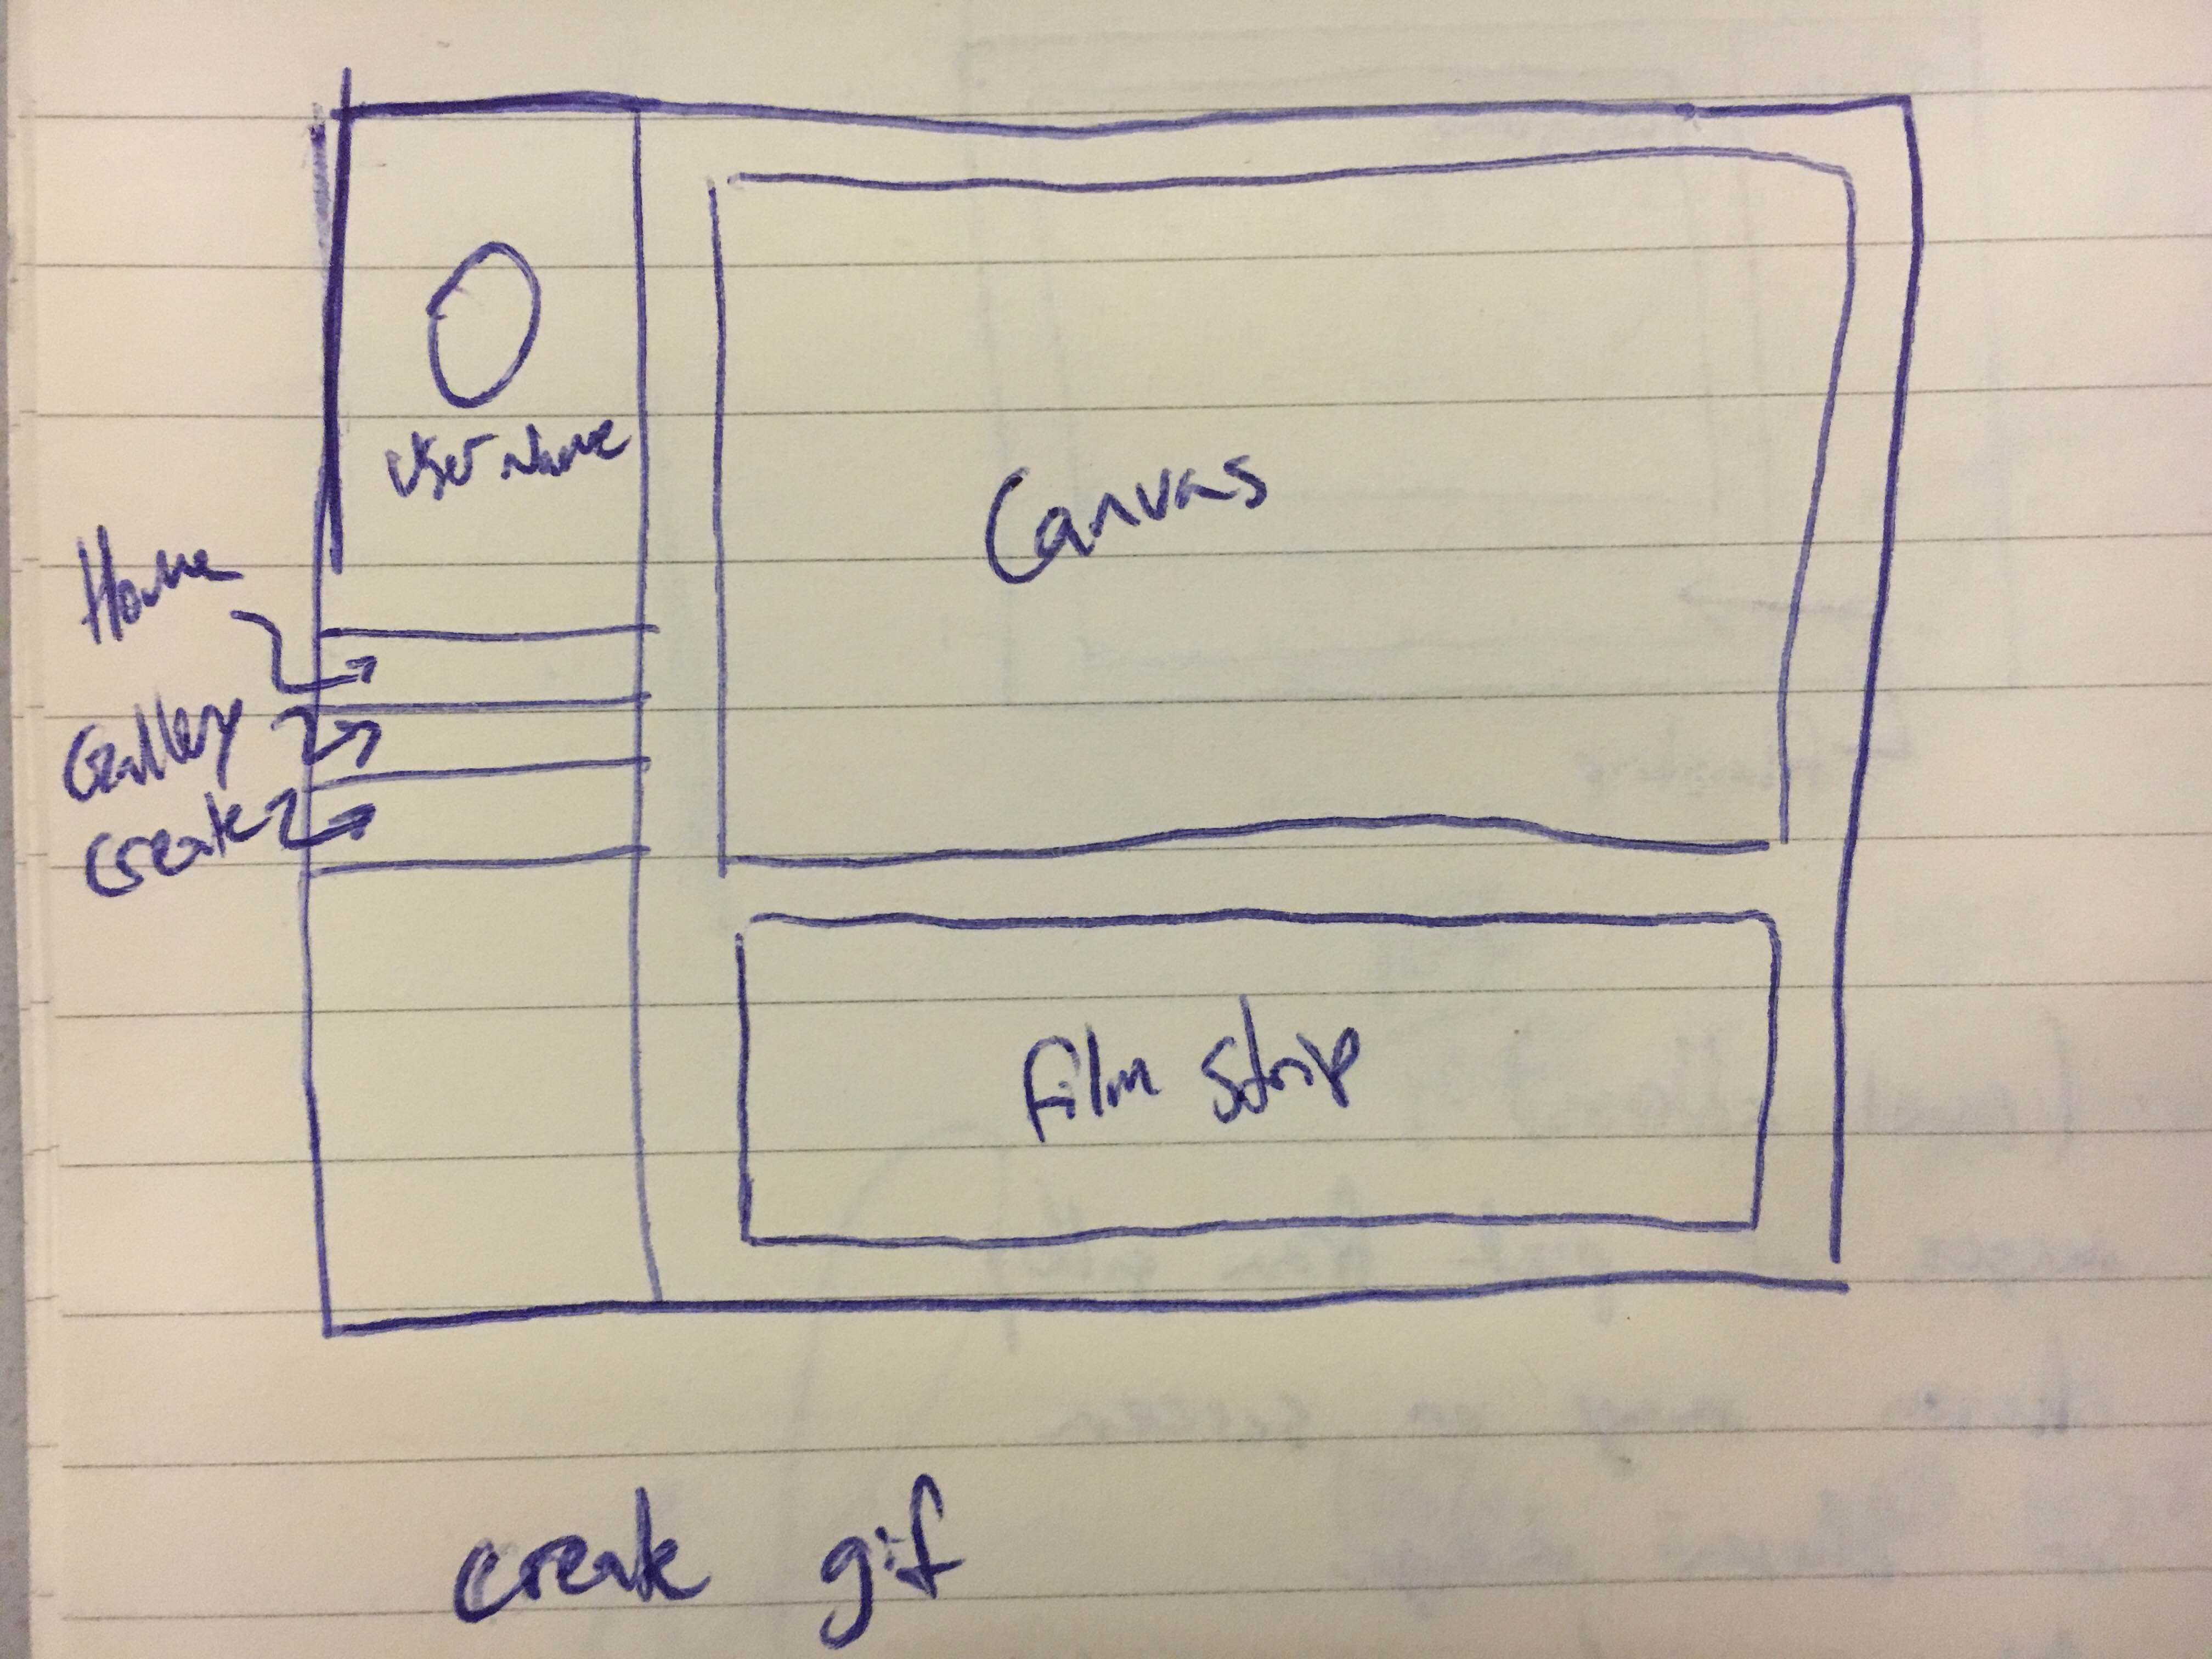 User Name
Home
Gallery
Create
Canvas
Film Strip
create gif